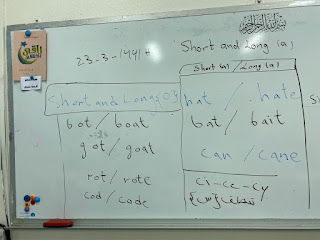 بسم الله الرحمن الرحيم
23-3-1441 H
Short and Long (a)
Short and Long (O)
bot / boat
got / goat
rot / rote
cod / code
Short (a) / Long (a)
hat / hate
bat / bait
can / cane
Ci - Ce - Cy